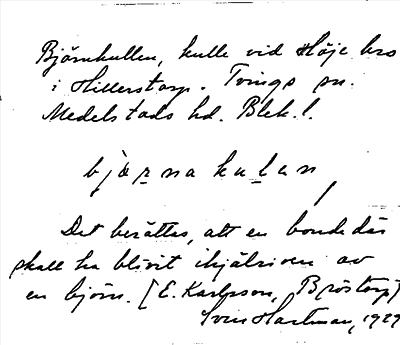 Björnkullen, kulle vid Höje bro
i Hillerstorp. Tvings sn.
Medelstads hd. Blek. l.
bjœrnakulan
Det berättas, att en bonde där
skall ha blivit ihjälriven av
en björn. [E. Karlsson, Bröstorp]
Sven Hartman, 1929